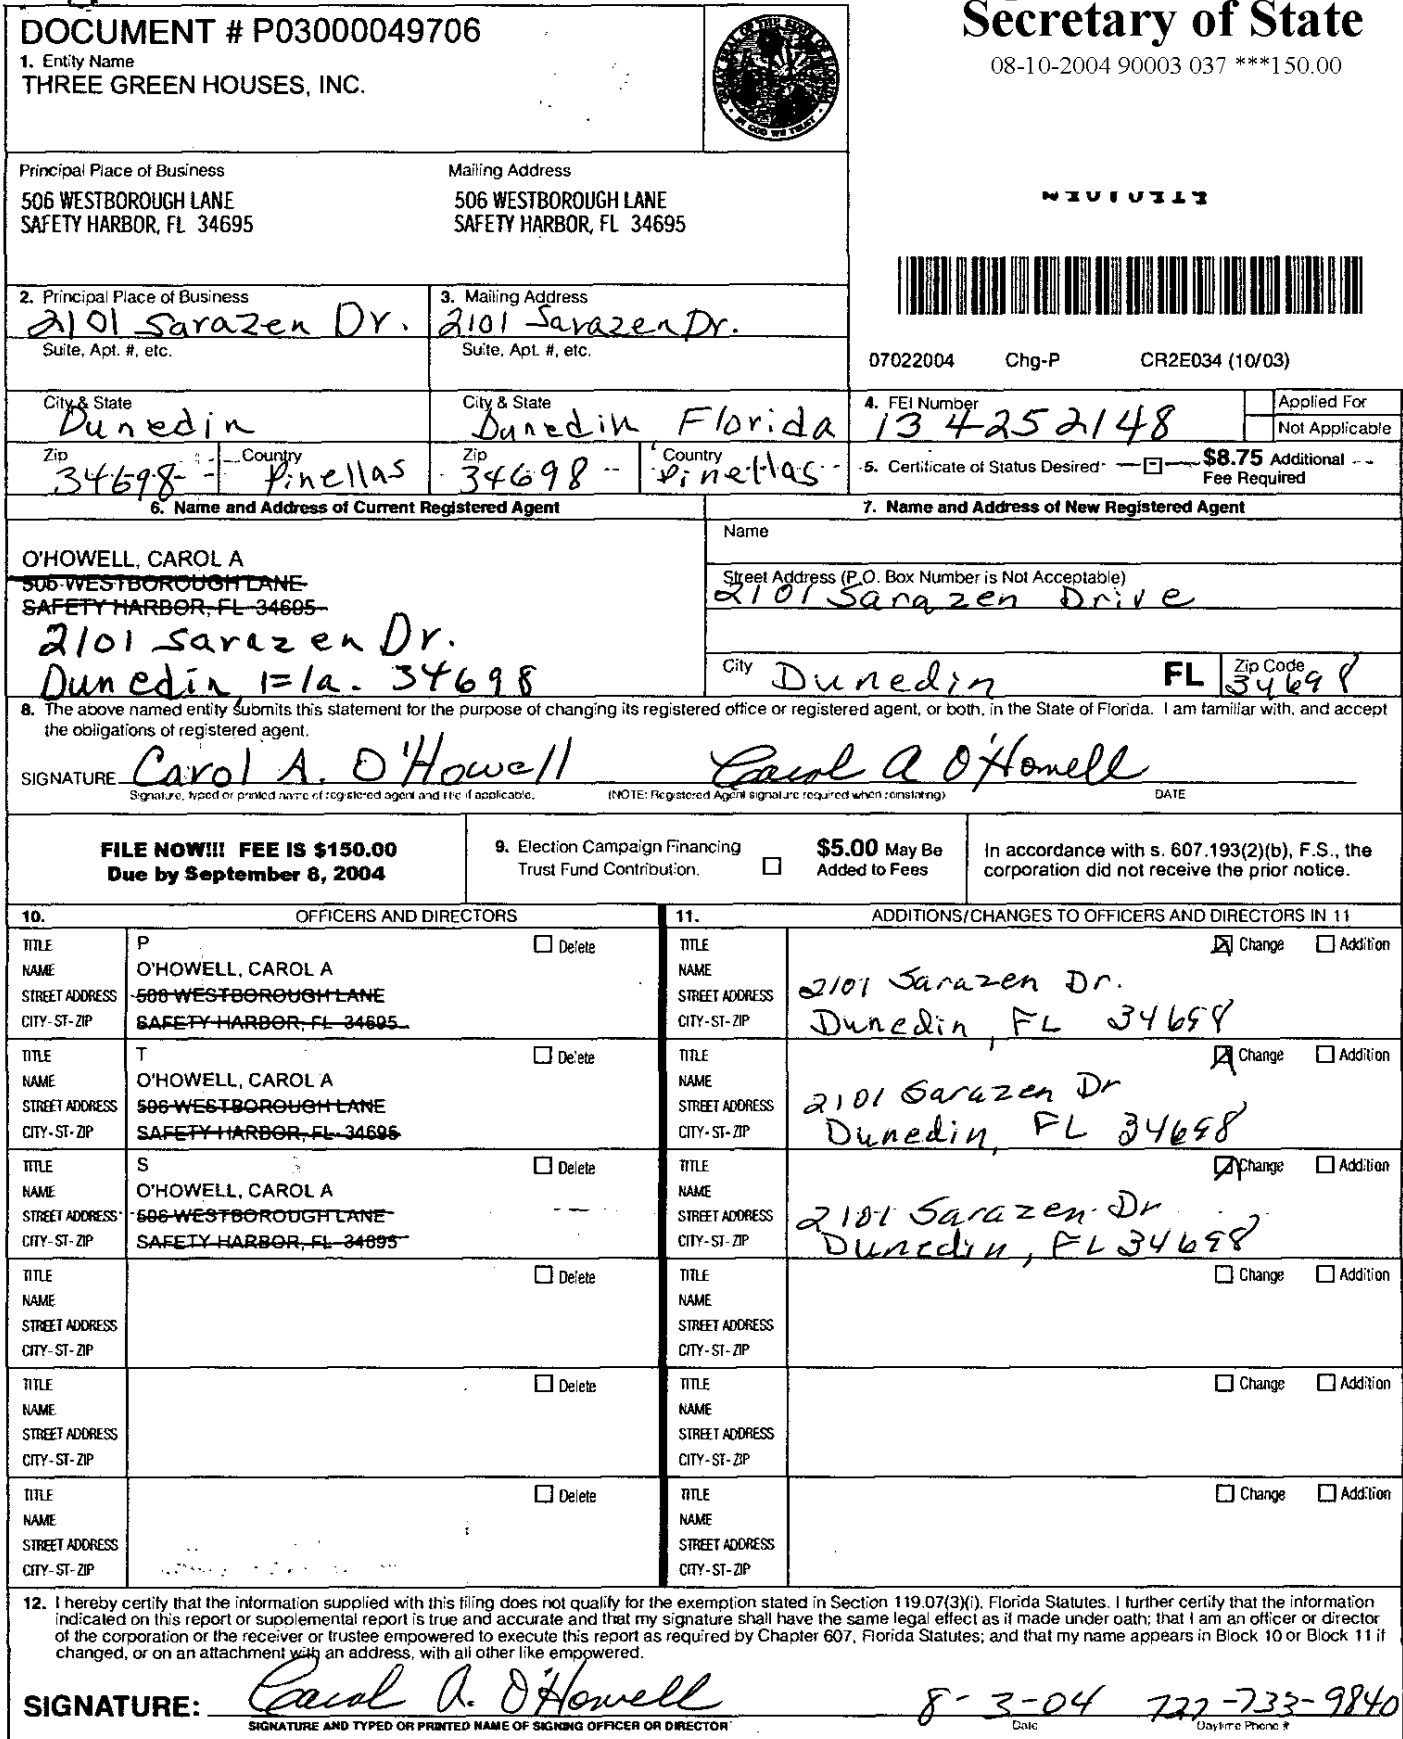 Secretary of State
08-10-2004 90003 037 ***150.00
DOCUMENT # P03000049706
1. Entity Name
THREE GREEN HOUSES, INC.
Principal Place of Business
506 WESTBOROUGH LANE
SAFETY HARBOR, FL 34695
Mailing Address
506 WESTBOROUGH LANE
SAFETY HARBOR, FL 34695
2. Principal Place of Business
2101 Sarazen Dr.
Suite, Apt. #, etc.
3. Mailing Address
2101 Sarazen Dr.
Suite, Apt. #, etc.
07022004 Chg-P CR2E034 (10/03)
City & State
Dunedin
City & State
Dunedin Florida
4. FEI Number
134252148
Applied For
Not Applicable
Zip
34698
Country
Pinellas
Zip
34698
Country
Pinellas
5. Certificate of Status Desired
$8.75 Additional
Fee Required
6. Name and Address of Current Registered Agent
O'HOWELL, CAROL A
506 WESTBOROUGH LANE
SAFETY HARBOR, FL 34695
2101 Sarazen Dr.
Dunedin, Fla. 34698
7. Name and Address of New Registered Agent
Name
Street Address (P.O. Box Number is Not Acceptable)
2101 Sarazen Drive
City Dunedin FL Zip Code 34698
8. The above named entity submits this statement for the purpose of changing its registered office or registered agent, or both, in the State of Florida. I am familiar with, and accept
the obligations of registered agent.
SIGNATURE Carol A. O'Howell Carol A O'Howell
Signature, typed or printed name of registered agent and title if applicable. (NOTE: Registered Agent signature required when reinstating) DATE
FILE NOW!!! FEE IS $150.00
Due by September 8, 2004
9. Election Campaign Financing
Trust Fund Contribution.
$5.00 May Be
Added to Fees
In accordance with s. 607.193(2)(b), F.S., the
corporation did not receive the prior notice.
10. OFFICERS AND DIRECTORS
11. ADDITIONS/CHANGES TO OFFICERS AND DIRECTORS IN 11
TITLE P Delete
NAME O'HOWELL, CAROL A
STREET ADDRESS 506 WESTBOROUGH LANE
CITY-ST-ZIP SAFETY HARBOR, FL 34695
TITLE Change Addition
NAME
STREET ADDRESS 2101 Sarazen Dr.
CITY-ST-ZIP Dunedin, FL 34698
TITLE T Delete
NAME O'HOWELL, CAROL A
STREET ADDRESS 506 WESTBOROUGH LANE
CITY-ST-ZIP SAFETY HARBOR, FL 34695
TITLE Change Addition
NAME
STREET ADDRESS 2101 Sarazen Dr
CITY-ST-ZIP Dunedin, FL 34698
TITLE S Delete
NAME O'HOWELL, CAROL A
STREET ADDRESS 506 WESTBOROUGH LANE
CITY-ST-ZIP SAFETY HARBOR, FL 34695
TITLE Change Addition
NAME
STREET ADDRESS 2101 Sarazen Dr
CITY-ST-ZIP Dunedin, FL 34698
TITLE Delete
NAME
STREET ADDRESS
CITY-ST-ZIP
TITLE Change Addition
NAME
STREET ADDRESS
CITY-ST-ZIP
TITLE Delete
NAME
STREET ADDRESS
CITY-ST-ZIP
TITLE Change Addition
NAME
STREET ADDRESS
CITY-ST-ZIP
TITLE Delete
NAME
STREET ADDRESS
CITY-ST-ZIP
TITLE Change Addition
NAME
STREET ADDRESS
CITY-ST-ZIP
12. I hereby certify that the information supplied with this filing does not qualify for the exemption stated in Section 119.07(3)(i), Florida Statutes. I further certify that the information
indicated on this report or supplemental report is true and accurate and that my signature shall have the same legal effect as if made under oath; that I am an officer or director
of the corporation or the receiver or trustee empowered to execute this report as required by Chapter 607, Florida Statutes; and that my name appears in Block 10 or Block 11 if
changed, or on an attachment with an address, with all other like empowered.
SIGNATURE: Carol A. O'Howell 8-3-04 727-733-9840
SIGNATURE AND TYPED OR PRINTED NAME OF SIGNING OFFICER OR DIRECTOR Date Daytime Phone #